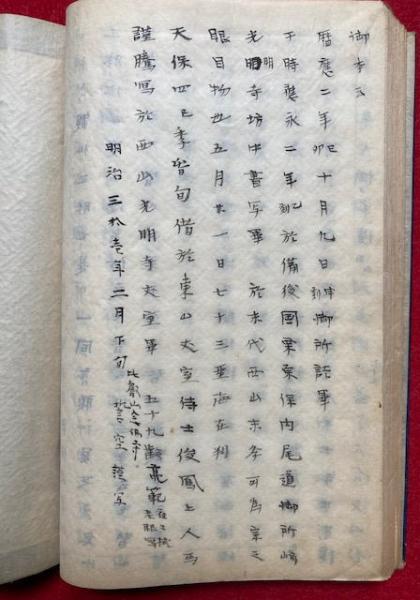 御本云
暦應二年己卯十月九日 御所談畢
于時應永二年 於備後國 栗原保内尾道御所崎
光明寺坊中書写畢 於末代西山末学可為 之
眼目物也 五月廿一日七十三 在判
天保四巳季 旬借於東山大室侍士俊鳳上人写
謹騰写於西山光明寺大室畢 五十九齢亮範
明治三拾壱年二月下旬 比叡山 空謹写